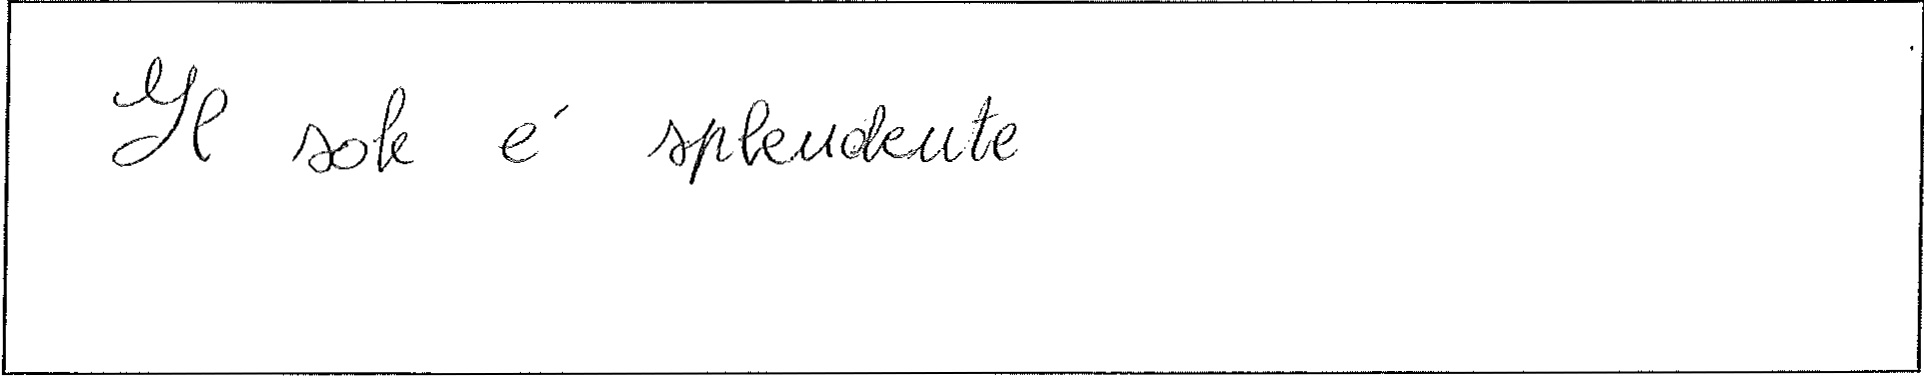 Il sole é splendente